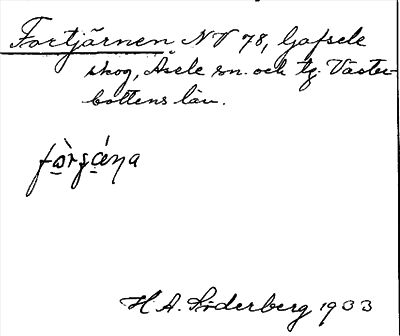 Fortjärnen NV 78, Gafsele
skog, Åsele sn. och tg. Väster-
bottens län.
H A. Söderberg 1933